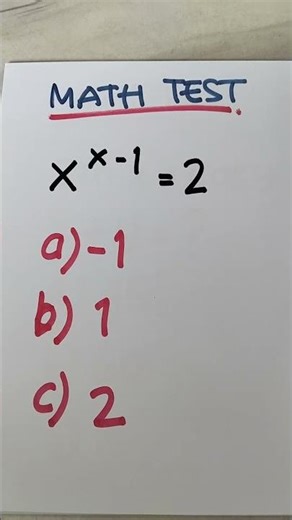 MATH TEST.
x^{x-1} = 2
a) -1
b) 1
c) 2